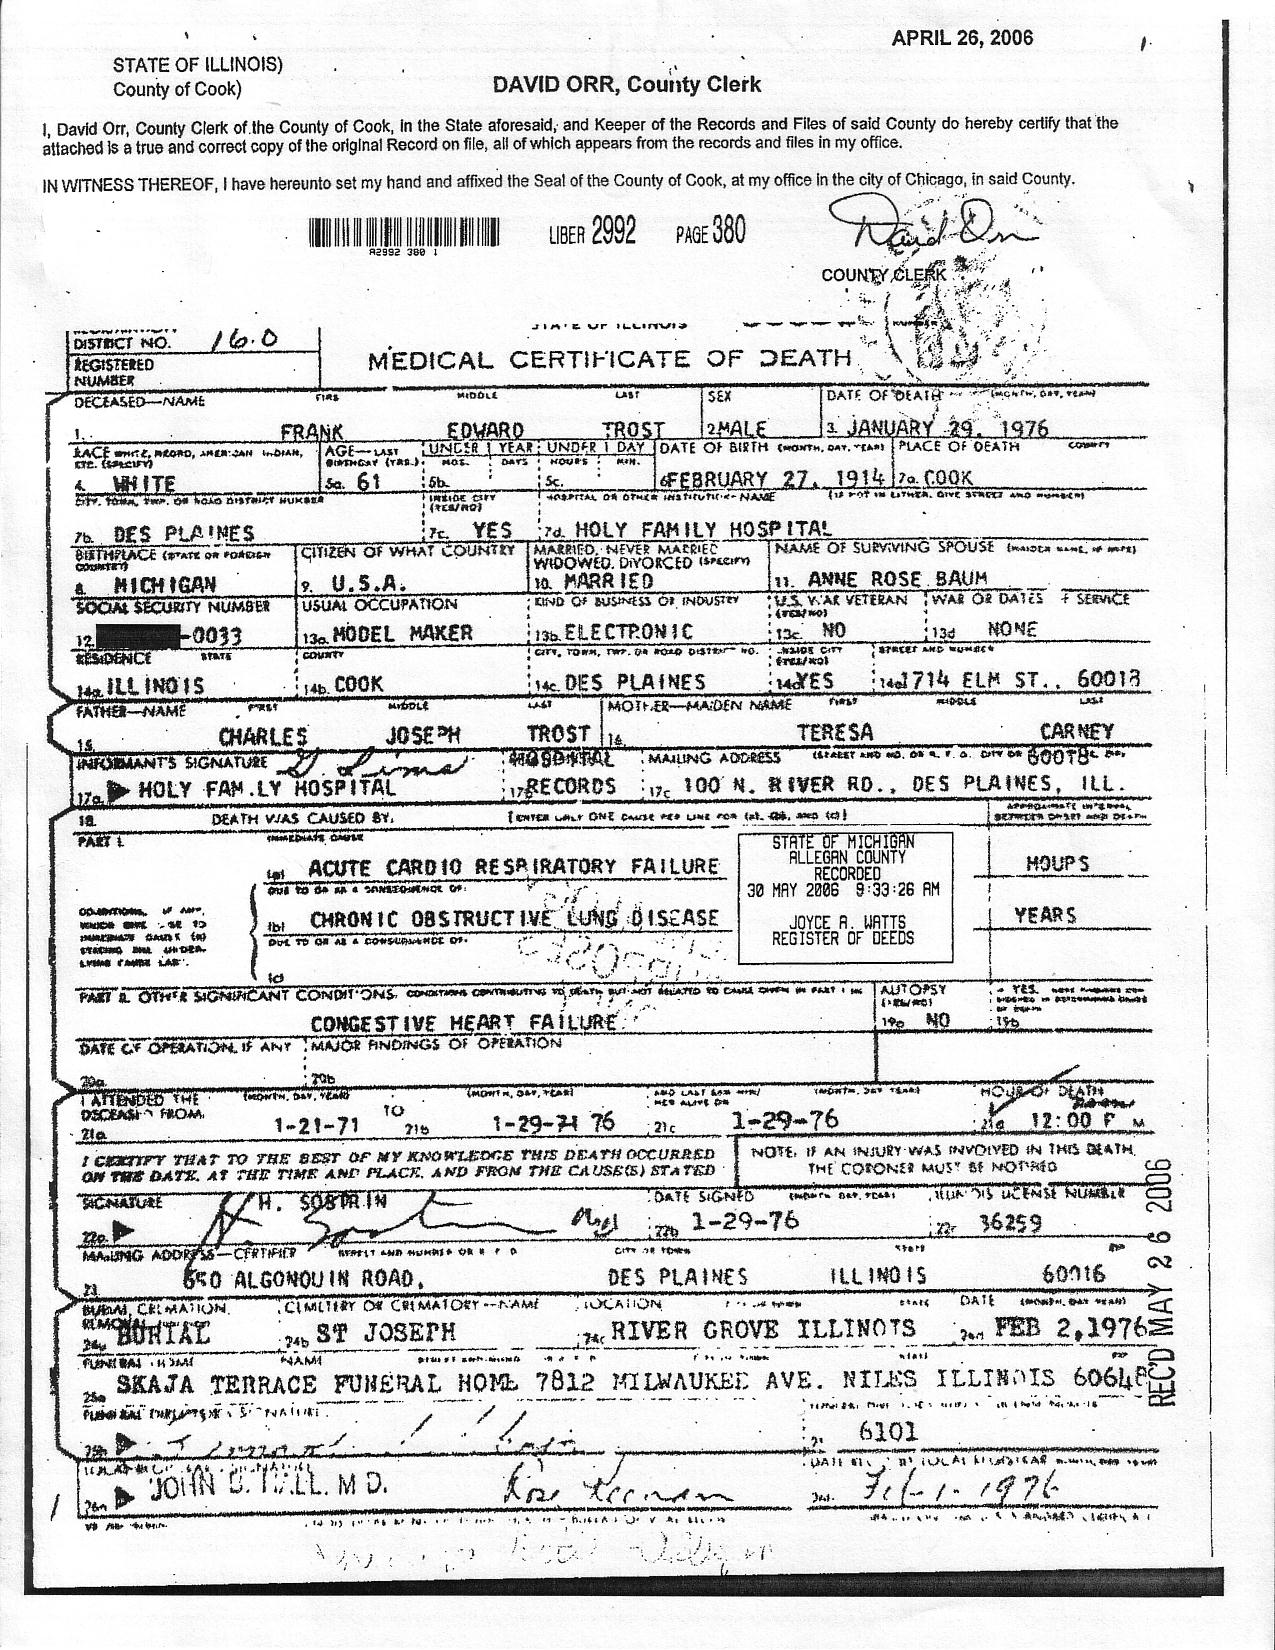 APRIL 26, 2006
STATE OF ILLINOIS)
County of Cook)
DAVID ORR, County Clerk
I, David Orr, County Clerk of the County of Cook, in the State aforesaid, and Keeper of the Records and Files of said County do hereby certify that the
attached is a true and correct copy of the original Record on file, all of which appears from the records and files in my office.
IN WITNESS THEREOF, I have hereunto set my hand and affixed the Seal of the County of Cook, at my office in the city of Chicago, in said County.
LIBER 2992 PAGE 380
A2992 380 1
David Orr
COUNTY CLERK
STATE OF ILLINOIS
DISTRICT NO. 16.0
REGISTERED
NUMBER
MEDICAL CERTIFICATE OF DEATH
DECEASED—NAME FIRST MIDDLE LAST SEX DATE OF DEATH (MONTH, DAY, YEAR)
1. FRANK EDWARD TROST 2. MALE 3. JANUARY 29, 1976
RACE WHITE, NEGRO, AMERICAN INDIAN, ETC. (SPECIFY) AGE—LAST BIRTHDAY (YRS.) UNDER 1 YEAR MOS. DAYS UNDER 1 DAY HOURS MIN. DATE OF BIRTH (MONTH, DAY, YEAR) PLACE OF DEATH COUNTY
4. WHITE 5a. 61 5b. 5c. 6 FEBRUARY 27, 1914 7a. COOK
CITY, TOWN, TWP. OR ROAD DISTRICT NUMBER INSIDE CITY (YES/NO) HOSPITAL OR OTHER INSTITUTION—NAME (IF NOT IN EITHER, GIVE STREET AND NUMBER)
7b. DES PLAINES 7c. YES 7d. HOLY FAMILY HOSPITAL
BIRTHPLACE (STATE OR FOREIGN COUNTRY) CITIZEN OF WHAT COUNTRY MARRIED, NEVER MARRIED, WIDOWED, DIVORCED (SPECIFY) NAME OF SURVIVING SPOUSE (MAIDEN NAME, IF WIFE)
8. MICHIGAN 9. U.S.A. 10. MARRIED 11. ANNE ROSE BAUM
SOCIAL SECURITY NUMBER USUAL OCCUPATION KIND OF BUSINESS OR INDUSTRY U.S. WAR VETERAN (YES/NO) WAR OR DATES OF SERVICE
12. -0033 13a. MODEL MAKER 13b. ELECTRONIC 13c. NO 13d NONE
RESIDENCE STATE COUNTY CITY, TOWN, TWP. OR ROAD DISTRICT NO. INSIDE CITY (YES/NO) STREET AND NUMBER
14a. ILLINOIS 14b. COOK 14c. DES PLAINES 14d YES 14e 1714 ELM ST., 60018
FATHER—NAME FIRST MIDDLE LAST MOTHER—MAIDEN NAME FIRST MIDDLE LAST
15. CHARLES JOSEPH TROST 16. TERESA CARNEY
INFORMANT'S SIGNATURE MAILING ADDRESS (STREET AND NO. OR R. F. D. CITY OR 60018
17a. HOLY FAMILY HOSPITAL 17b RECORDS 17c 100 N. RIVER RD., DES PLAINES, ILL.
18. DEATH WAS CAUSED BY: (ENTER ONLY ONE CAUSE PER LINE FOR (a), (b), AND (c)) APPROXIMATE INTERVAL BETWEEN ONSET AND DEATH
PART I. IMMEDIATE CAUSE
(a) ACUTE CARDIO RESPIRATORY FAILURE HOURS
DUE TO OR AS A CONSEQUENCE OF:
(b) CHRONIC OBSTRUCTIVE LUNG DISEASE YEARS
DUE TO OR AS A CONSEQUENCE OF:
(c)
CONDITIONS, IF ANY,
WHICH GIVE RISE TO
IMMEDIATE CAUSE (a)
STATING THE UNDER-
LYING CAUSE LAST.
STATE OF MICHIGAN
ALLEGAN COUNTY
RECORDED
30 MAY 2006 9:33:26 AM
JOYCE A. WATTS
REGISTER OF DEEDS
PART II. OTHER SIGNIFICANT CONDITIONS: CONDITIONS CONTRIBUTING TO DEATH BUT NOT RELATED TO CAUSE GIVEN IN PART I (a) AUTOPSY (YES/NO)
CONGESTIVE HEART FAILURE 19a NO 19b
DATE OF OPERATION, IF ANY MAJOR FINDINGS OF OPERATION
20a 20b
I ATTENDED THE DECEASED FROM: (MONTH, DAY, YEAR) TO (MONTH, DAY, YEAR) AND LAST SAW HIM/HER ALIVE ON (MONTH, DAY, YEAR) HOUR OF DEATH
21a 1-21-71 21b 1-29-71 76 21c 1-29-76 21d 12:00 P M
I CERTIFY THAT TO THE BEST OF MY KNOWLEDGE THIS DEATH OCCURRED
ON THE DATE, AT THE TIME AND PLACE, AND FROM THE CAUSE(S) STATED
NOTE: IF AN INJURY WAS INVOLVED IN THIS DEATH
THE CORONER MUST BE NOTIFIED
SIGNATURE H. SOSTRIN DATE SIGNED (MONTH, DAY, YEAR) ILLINOIS LICENSE NUMBER
22a. 22b 1-29-76 22c 36259
MAILING ADDRESS—CERTIFIER STREET AND NUMBER OR R F D CITY OR TOWN STATE ZIP
23 650 ALGONQUIN ROAD, DES PLAINES ILLINOIS 60016
BURIAL, CREMATION, REMOVAL CEMETERY OR CREMATORY—NAME LOCATION STATE DATE (MONTH, DAY, YEAR)
24a BURIAL 24b ST JOSEPH 24c RIVER GROVE ILLINOIS 24d FEB 2, 1976
FUNERAL HOME NAME STATE ZIP
25a SKAJA TERRACE FUNERAL HOME 7812 MILWAUKEE AVE. NILES ILLINOIS 60648
FUNERAL DIRECTOR'S SIGNATURE
25b 6101
JOHN B. HALL. M D. Rose Feb 1 1976
REC'D MAY 26 2006